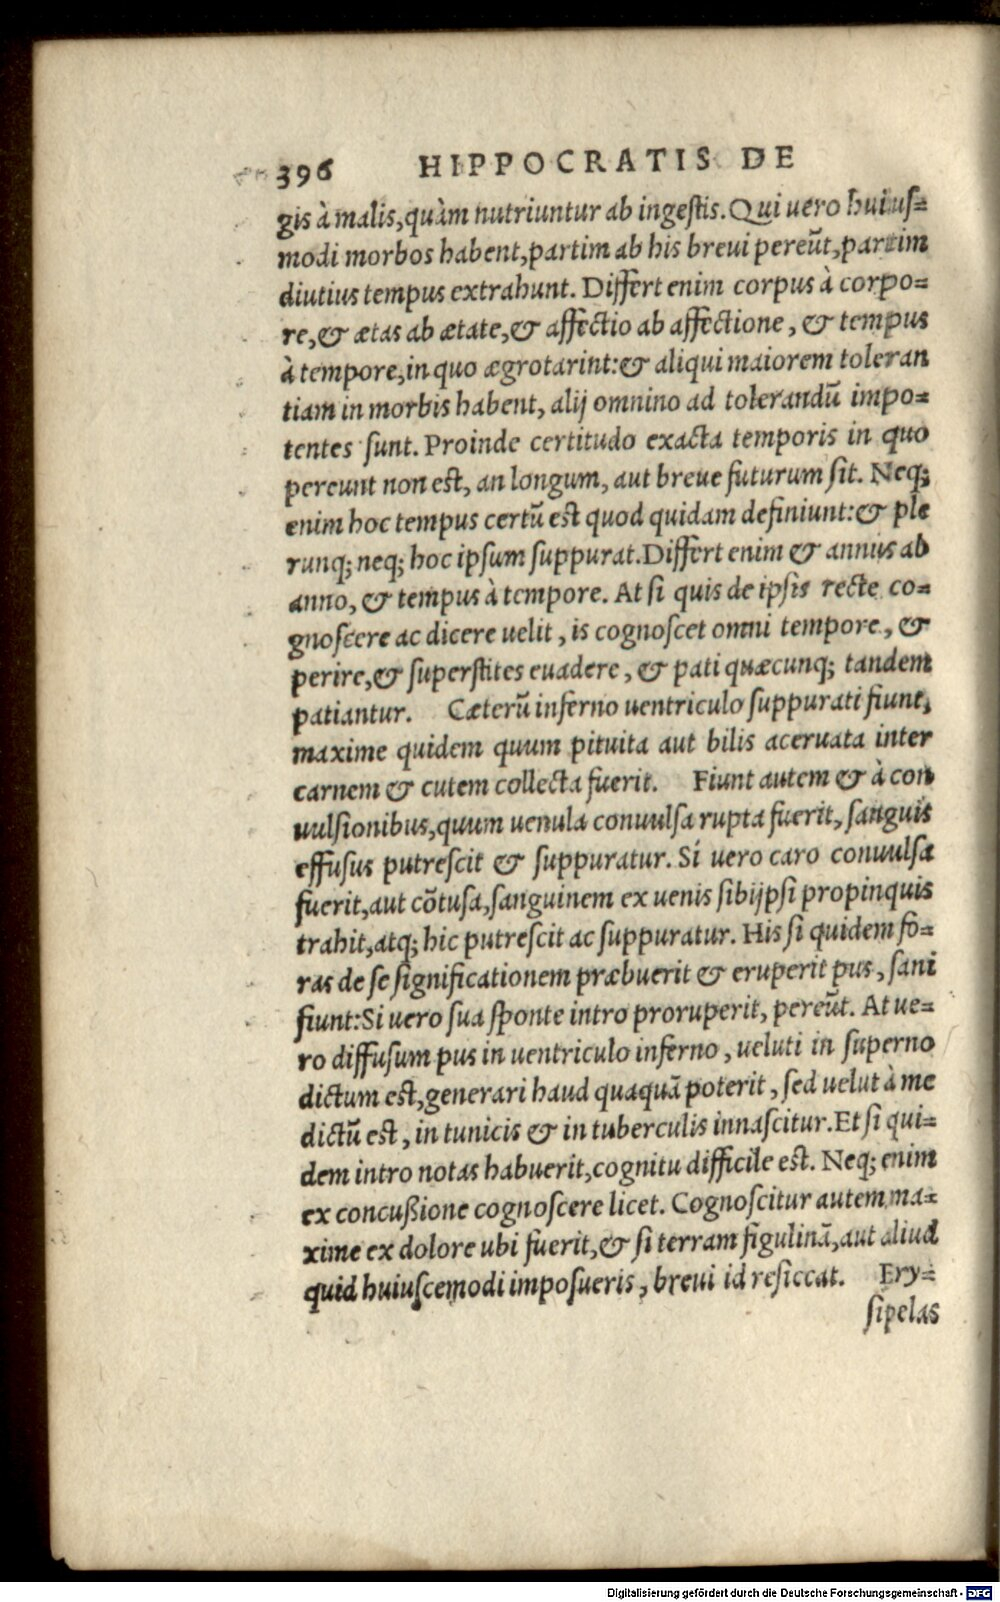 396 HIPPOCRATIS DE
gis à malis, quàm nutriuntur ab ingestis. Qui uero huius=
modi morbos habent, partim ab his breui pereūt, partim
diutius tempus extrahunt. Differt enim corpus à corpo=
re, & ætas ab ætate, & affectio ab affectione, & tempus
à tempore, in quo ægrotarint: & aliqui maiorem toleran
tiam in morbis habent, alij omnino ad tolerandū impo=
tentes sunt. Proinde certitudo exacta temporis in quo
pereunt non est, an longum, aut breue futurum sit. Neq;
enim hoc tempus certū est quod quidam definiunt: & ple
runq; neq; hoc ipsum suppurat. Differt enim & annus ab
anno, & tempus à tempore. At si quis de ipsis recte co=
gnoscere ac dicere uelit, is cognoscet omni tempore, &
perire, & superstites euadere, & pati quæcunq; tandem
patiantur. Cæterū inferno uentriculo suppurati fiunt,
maxime quidem quum pituita aut bilis aceruata inter
carnem & cutem collecta fuerit. Fiunt autem & à con
uulsionibus, quum uenula conuulsa rupta fuerit, sanguis
effusus putrescit & suppuratur. Si uero caro conuulsa
fuerit, aut cōtusa, sanguinem ex uenis sibijpsi propinquis
trahit, atq; hic putrescit ac suppuratur. His si quidem fo=
ras de se significationem præbuerit & eruperit pus, sani
fiunt: Si uero sua sponte intro proruperit, pereūt. At ue=
ro diffusum pus in uentriculo inferno, ueluti in superno
dictum est, generari haud quaquā poterit, sed uelut à me
dictū est, in tunicis & in tuberculis innascitur. Et si qui=
dem intro notas habuerit, cognitu difficile est. Neq; enim
ex concußione cognoscere licet. Cognoscitur autem ma=
xime ex dolore ubi fuerit, & si terram figulinā, aut aliud
quid huiuscemodi imposueris, breui id resiccat. Ery=
sipelas
Digitalisierung gefördert durch die Deutsche Forschungsgemeinschaft - DFG